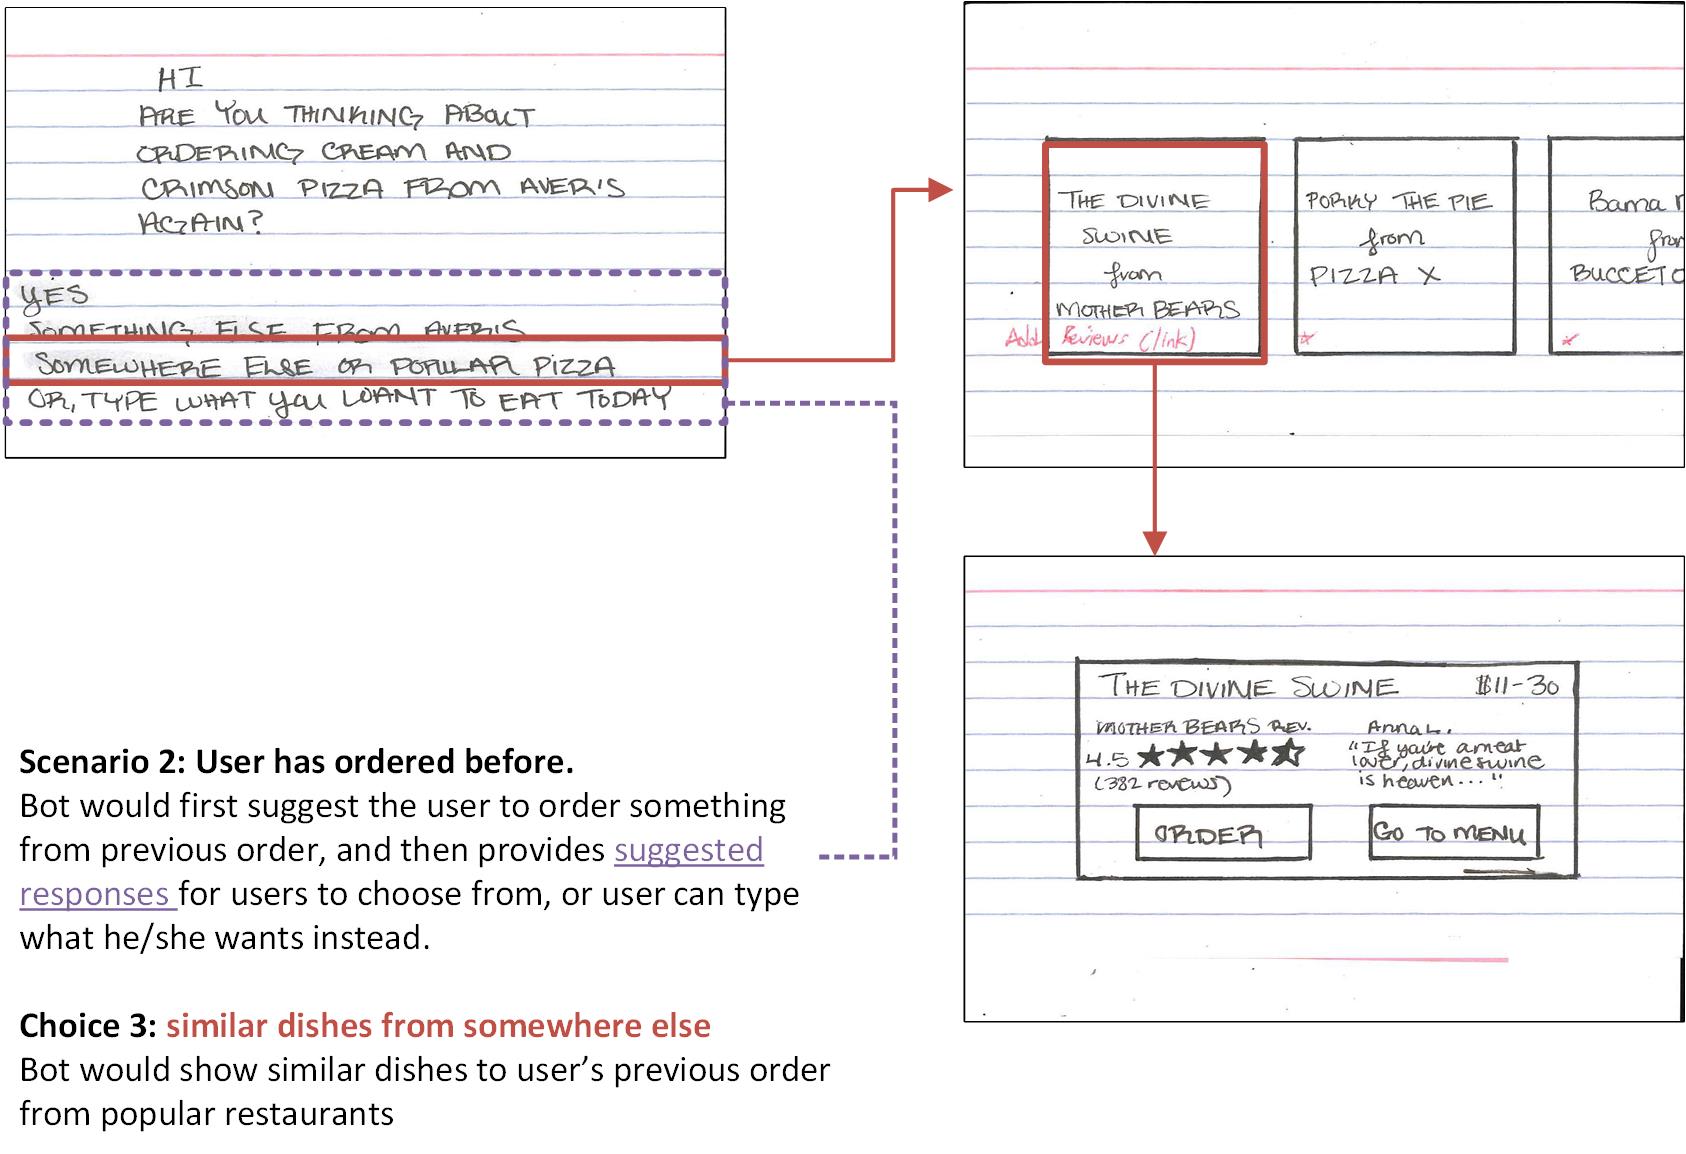 HI
ARE YOU THINKING ABOUT
ORDERING CREAM AND
CRIMSON PIZZA FROM AVER'S
AGAIN?
YES
SOMETHING ELSE FROM AVERIS
SOMEWHERE ELSE OR POPULAR PIZZA
OR, TYPE WHAT YOU WANT TO EAT TODAY
THE DIVINE
SWINE
from
MOTHER BEARS
Add Reviews (link)
PORKY THE PIE
from
PIZZA X
*
Bama
from
BUCCETO
*
THE DIVINE SWINE $11-30
MOTHER BEARS REV.
4.5 ★★★★
(382 reviews)
Anna L.
"If you're a meat
lover, divine swine
is heaven..."
ORDER
GO TO MENU
Scenario 2: User has ordered before.
Bot would first suggest the user to order something
from previous order, and then provides suggested
responses for users to choose from, or user can type
what he/she wants instead.
Choice 3: similar dishes from somewhere else
Bot would show similar dishes to user's previous order
from popular restaurants